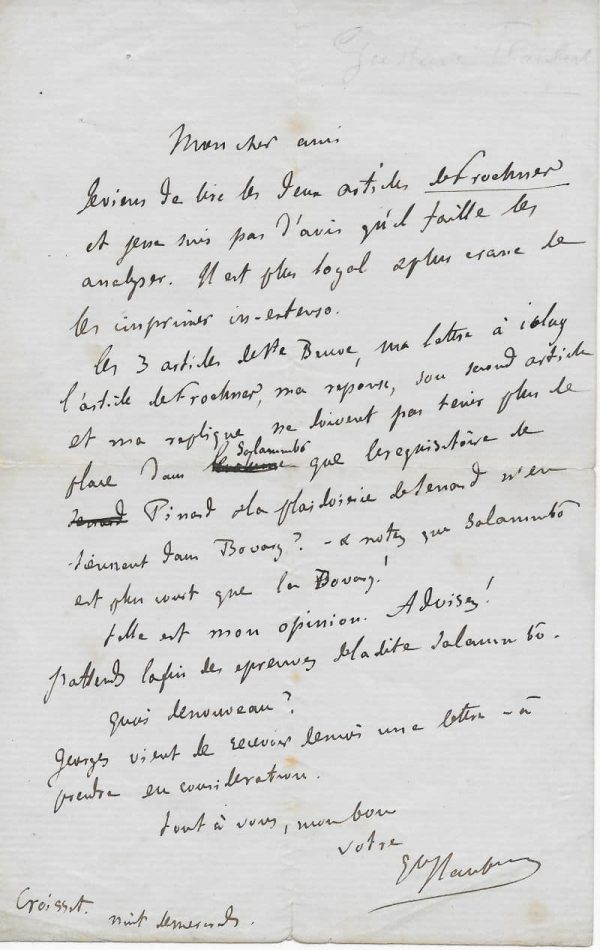 Gustave Flaubert
Mon cher ami
Je viens de lire les deux articles de Froehner
et je ne suis pas d'avis qu'il faille les
analyser. Il est plus loyal & plus crane de
les imprimer in-extenso.
Les 3 articles de Ste Beuve, ma lettre à icelui
l'article de Froehner, ma reponse, son second article
et ma replique ne doivent pas tenir plus de
place dans Salammbô que le requisitoire de
Senard Pinard & la plaidoirie de Senard n'en
tiennent dans Bovary? - & notez que Salammbô
est plus court que la Bovary!
telle est mon opinion. Advisez!
J'attends la fin des epreuves de la dite Salammbô.
quoi de nouveau?
Georges vient de recevoir de moi une lettre - à
prendre en consideration.
tout à vous, mon bon
votre
Gve Flaubert
Croisset.
nuit de mercredi.